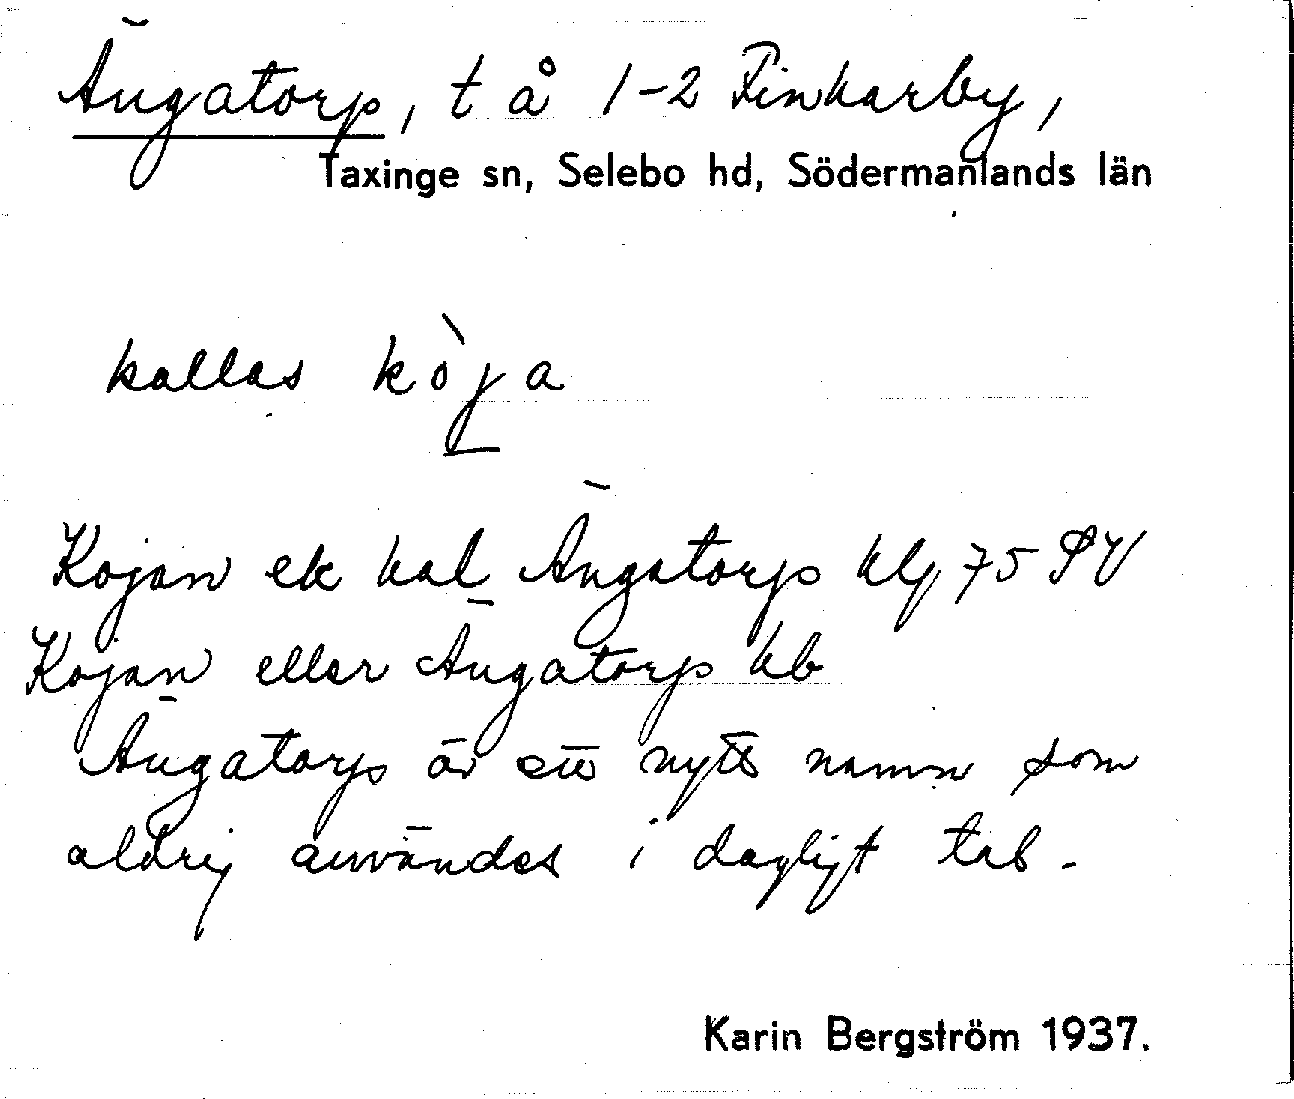 Ängatorp, t å 1-2 Finkarby,
Taxinge sn, Selebo hd, Södermanlands län
kallas kòja
Kojan ek kal Ängatorp klg 75 PV
Kojan eller Ängatorp hb
Ängatorp är ett nytt namn som
aldrig användes i dagligt tal.
Karin Bergström 1937.